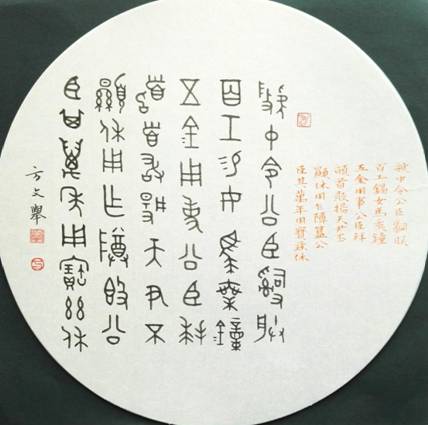 虢中令公臣嗣朕
百工錫女馬乘鐘
五金用事公臣拜
頴首敢揚天尹丕
顯休用乍障簋公
臣其萬年用寶茲休
虢中令公臣嗣朕
百工易女馬乘鐘
五金用事公臣拜
䭫首敢揚天尹不
顯休用乍障𣪘公
臣其萬年用寶茲休
方文舉